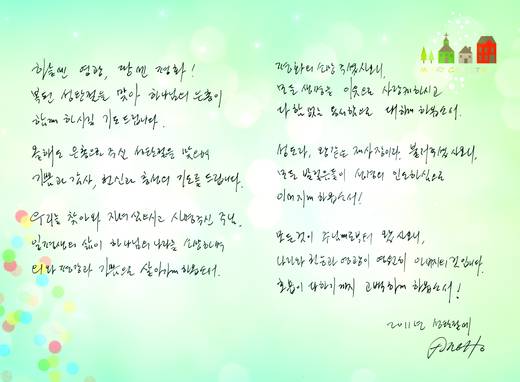 하늘엔 영광, 땅엔 평화!
복된 성탄절을 맞아 하나님의 은총이
함께 하시길 기도드립니다.
올해도 은총으로 주신 성탄절을 맞으며
기쁨과 감사, 헌신과 충성의 기도를 드립니다.
우리를 찾아와 자녀 삼으시고 사명주신 주님,
일평생의 삶이 하나님의 나라를 소망하며
의와 평강과 기쁨으로 살아가게 하옵소서.
평화의 소망 주셨사오니,
모든 생명을 이웃으로 사랑케하시고
다함없는 용서함으로 대하게 하옵소서.
성도라, 왕같은 제사장이라 불러주셨사오니,
모든 발걸음들이 성령의 인도하심으로
이어지게 하옵소서!
모든것이 주님께로부터 왔사오니,
나라와 권능과 영광이 영원히 아버지의 것입니다.
호흡이 다하기까지 고백하게 하옵소서!
2011년 성탄절에